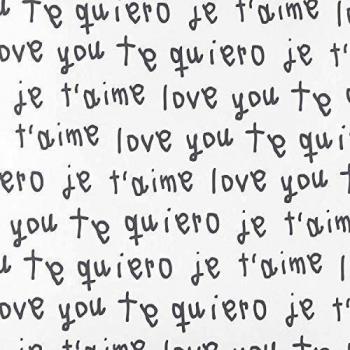 u te quiero je t'aime l
ove you te quiero je t'
je t'aime love you te
t'aime love you te qui
ero je t'aime love you t
you te quiero je t'aim
u te quiero je t'aime l
ove you te quiero je t'
je t'aime love you te